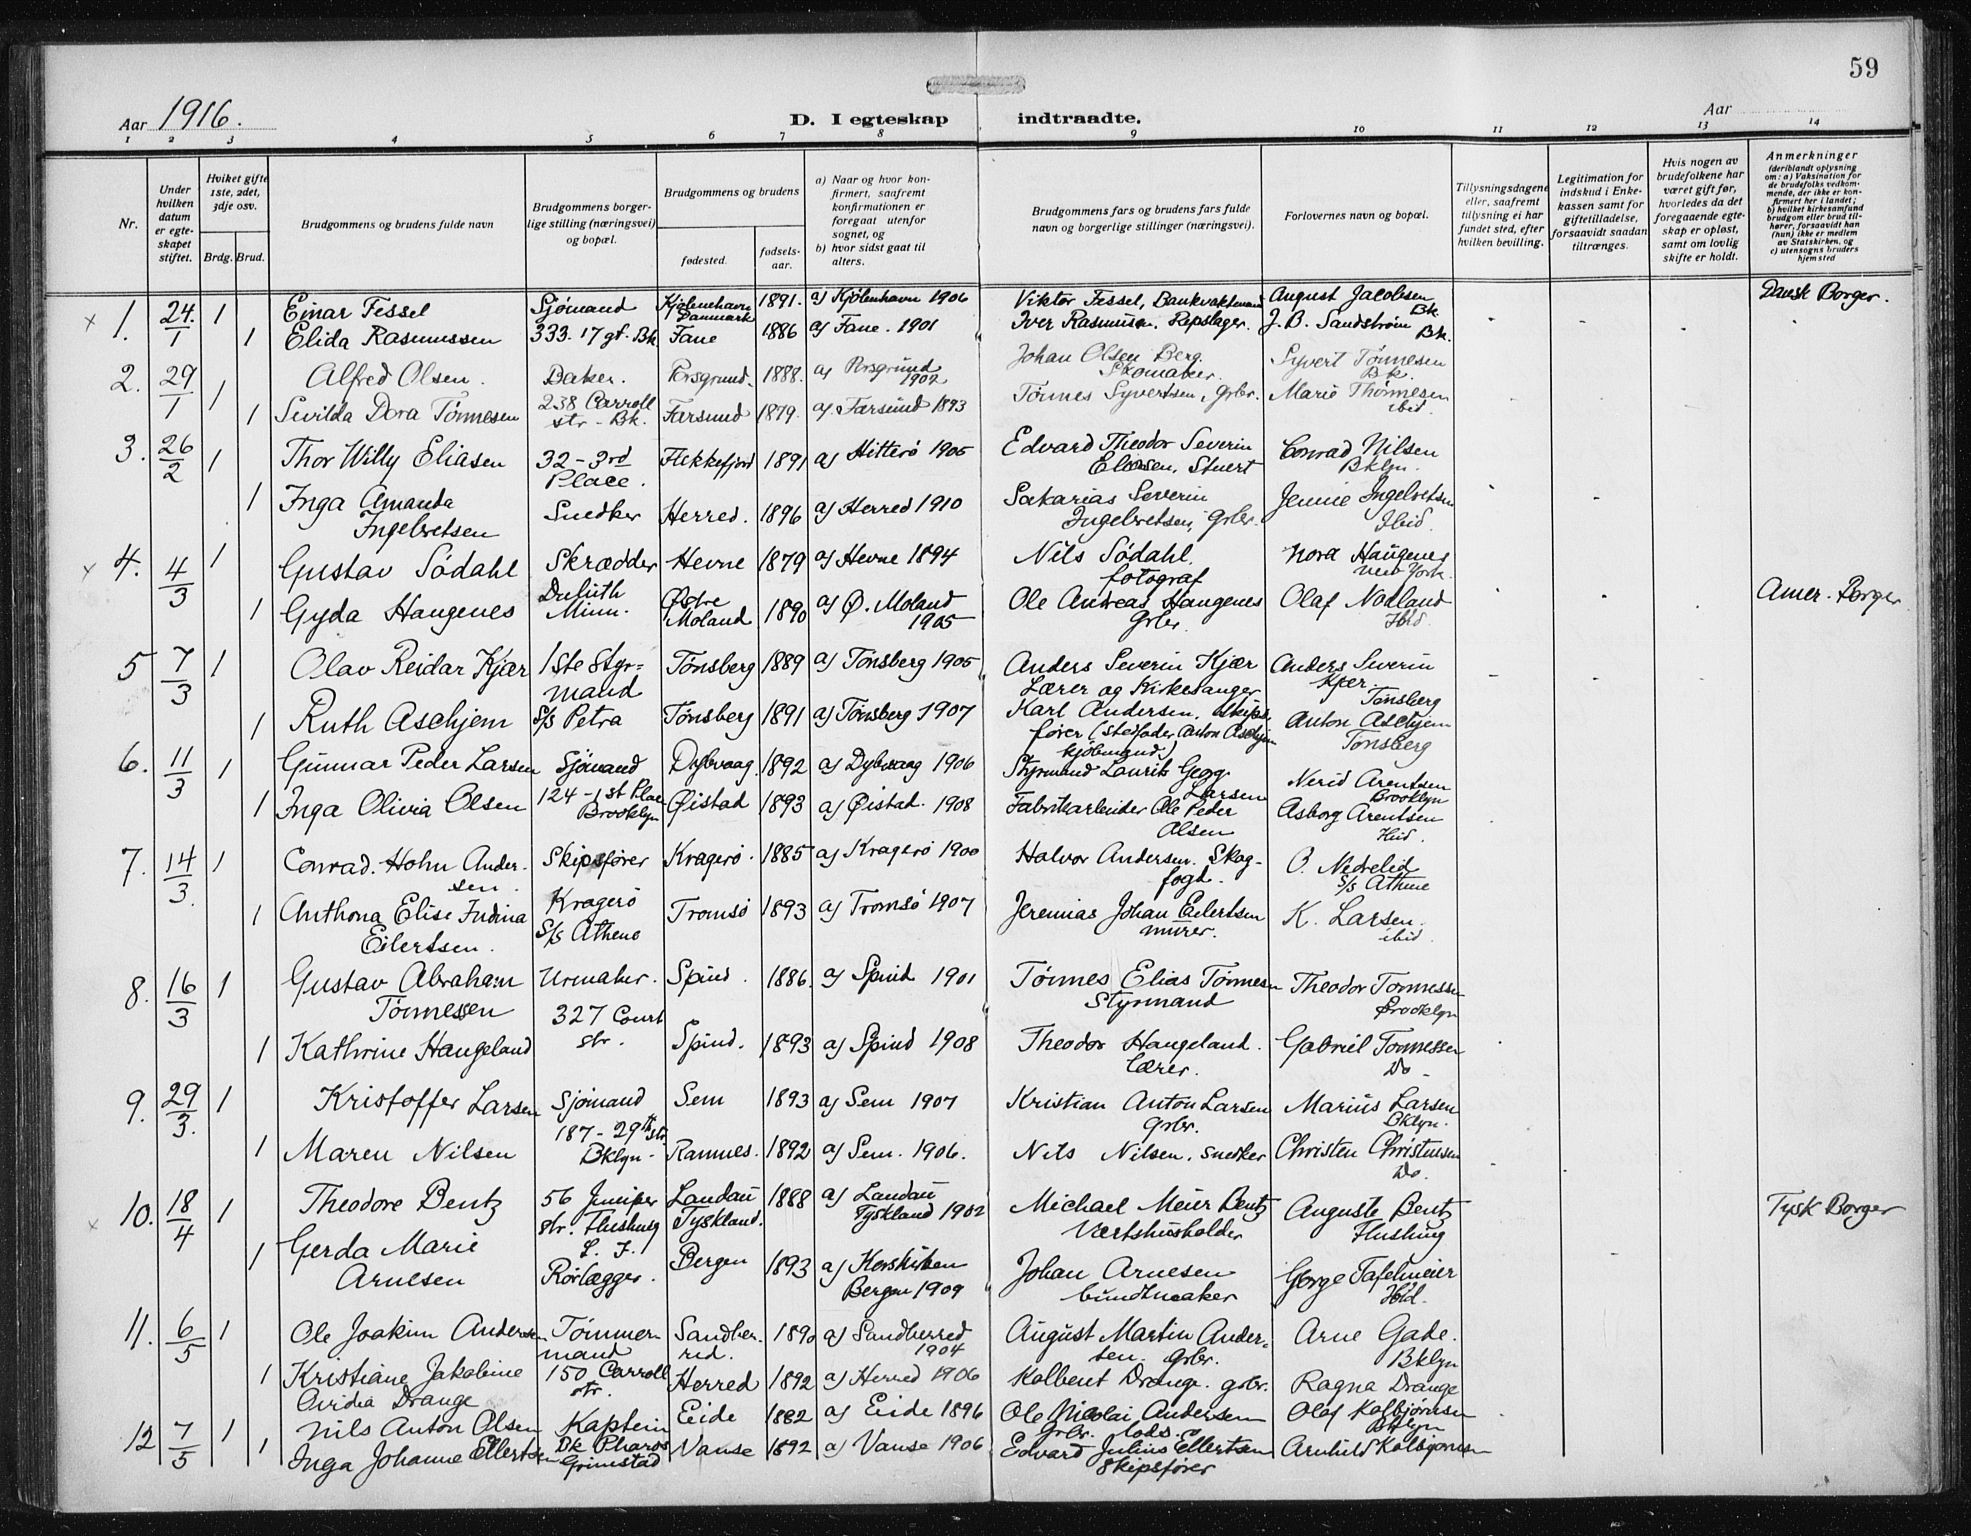 59
Aar 1916.
D. I egteskap indtraadte.
Aar
1 2 3 4 5 6 7 8 9 10 11 12 13 14
Nr.
Under hvilken datum er egteskapet stiftet.
Hviket gifte 1ste, 2det, 3dje osv.
Brdg. Brud.
Brudgommens og brudens fulde navn
Brudgommens borgerlige stilling (næringsvei) og bopæl.
Brudgommens og brudens
fødested.
fødsels-aar.
a) Naar og hvor konfirmert, saafremt konfirmationen er foregaat utenfor sognet, og
b) hvor sidst gaat til alters.
Brudgommens fars og brudens fars fulde navn og borgerlige stillinger (næringsvei).
Forlovernes navn og bopæl.
Tillysningsdagene eller, saafremt tillysning ei har fundet sted, efter hvilken bevilling.
Legitimation for indskud i Enkekassen samt for giftetilladelse, forsaavidt saadan tiltrænges.
Hvis nogen av brudefolkene har været gift før, hvorledes da det foregaaende egteskap er opløst, samt om lovlig skifte er holdt.
Anmerkninger (deriblandt oplysning om: a) Vaksination for de brudefolks vedkommende, der ikke er konfirmert her i landet; b) hvilket kirkesamfund brudgom eller brud tilhører, forsaavidt han (hun) ikke er medlem av Statskirken, og c) utensogns bruders hjemsted
x 1. 24/1 1 Einar Fessel Sjømand Kjøbenhavn Danmark 1891. a) Kjøbenhavn 1906 Viktor Fessel, Bankvaktmand August Jacobsen Bk. Dansk Borger.
1 Elida Rasmussen 333. 17 gt. Bk Fane 1886 a) Fane. 1901 Iver Rasmussen. Repslager. J. B. Sandstrøm Bk.
2. 29/1 1 Alfred Olsen. Baker. Porsgrund. 1888. a) Porsgrund 1902 Johan Olsen Berg. Skomaker. Syvert Tønnesen Bk.
1 Sevilda Dora Tønnesen 238 Carroll str - Bk. Farsund 1879. a). Farsund 1893 Tønnes Syvertsen, Grbr. Marie Thønnesen ibid.
3. 26/2 1 Thor Willy Eliasen 32 - 3rd Place. Flekkefjord 1891 a) Hitterø 1905 Edvard Theodor Severin Eliasen, Stuert Conrad Nilsen Bklyn.
1 Inga Amanda Ingebretsen Snedker Herred. 1896 a) Herred 1910 Sakarias Severin Ingebretsen, Grbr. Jennie Ingebretsen Ibid.
x 4. 4/3 1 Gustav Sødahl Skrædder Hevne 1879 a) Hevne 1894 Nils Sødahl. fotograf Nora Haugenes New York.
1 Gyda Haugenes Duluth Minn. Østre Moland 1890 a) Ø. Moland 1905 Ole Andreas Haugenes Grbr. Olaf Nodland Ibid. Amer. Borger
5 7/3 1 Olav Reidar Kjær 1ste Styrmand Tønsberg 1889 a) Tønsberg 1905 Anders Severin Kjær Lærer og Kirkesanger Anders Severin Kjær. Tønsberg
1 Ruth Aschjem S/s Petra Tønsberg 1891 a) Tønsberg 1907 Karl Andersen. Skipsfører (stedfader Anton Aschjem kjøbmand.) Anton Aschjem Tønsberg
6. 11/3 1 Gunnar Peder Larsen Sjømand Dybvaag. 1892 a) Dybvaag 1906 Styrmand Laurits Gegg Larsen Nerid Arentsen Brooklyn
1 Inga Olivia Olsen 124 - 1st Place Brooklyn Øistad 1893 a) Øistad. 1908 Fabrikarbeider Ole Peder Olsen Asborg Arentsen Ibid.
7. 14/3. 1 Conrad. Hohn Andersen. Skipsfører Kragerø. 1885 a) Kragerø 1900 Halvor Andersen. Skogfogd. O. Nedrelid S/s Athene
1 Anthona Elise Indina Eilertsen. Kragerø S/s Athene Tromsø 1893 a) Tromsø 1907 Jeremias Johan Eilertsen murer. K. Larsen. ibid.
8. 16/3 1 Gustav Abraham Tønnessen Urmaker. Spind. 1886. a) Spind 1901 Tønnes Elias Tønnesen Styrmand Theodor Tønnessen Brooklyn
1 Kathrine Haugeland 327 Court str. Spind. 1893 a) Spind 1908 Theodor Haugeland. Lærer. Gabriel Tønnessen Do -
9. 29/3. 1 Kristoffer Larsen Sjømand Sem 1893 a) Sem 1907 Kristian Anton Larsen Grbr. Marius Larsen Bklyn.
1 Maren Nilsen 187 - 29th str. Bklyn - Ramnes. 1892 a) Sem. 1906. Nils Nilsen, snedker Christen Christensen Do.
x 10. 18/4 1 Theodore Bentz 56 Juniper str. Flushing L. I. Landau Tyskland. 1888 a) Landau Tyskland 1902 Michael Meier Bentz Værtshusholder Auguste Bentz Flushing Tysk Borger
1 Gerda Marie Arnesen Rørlægger. Bergen 1893 a) Korskirken Bergen 1909 Johan Arnesen bundtmaker George Tafelmeier Ibid.
11. 6/5 1 Ole Joakim Andersen Tømmermand Sandherred. 1890 a) Sandherred 1904 August Martin Andersen. Grbr. Arne Gade. Bklyn
1 Kristiane Jakobine Ovidia Drange 150 Carroll str. Herred 1892 a) Herred 1906 Kolbent Drange. grbr. Ragna Drange
12 7/5 1 Nils Anton Olsen Kaptein Eide 1882 a) Eide 1896 Ole Nicolai Andersen Grbr. lods. Olaf Kolbjørnsen Bklyn
1 Inga Johanne Ellertsen Bk Pharos Grimstad Vanse 1892 a) Vanse 1906 Edvard Julius Ellertsen Skipsfører Arnhild Kolbjørnsen